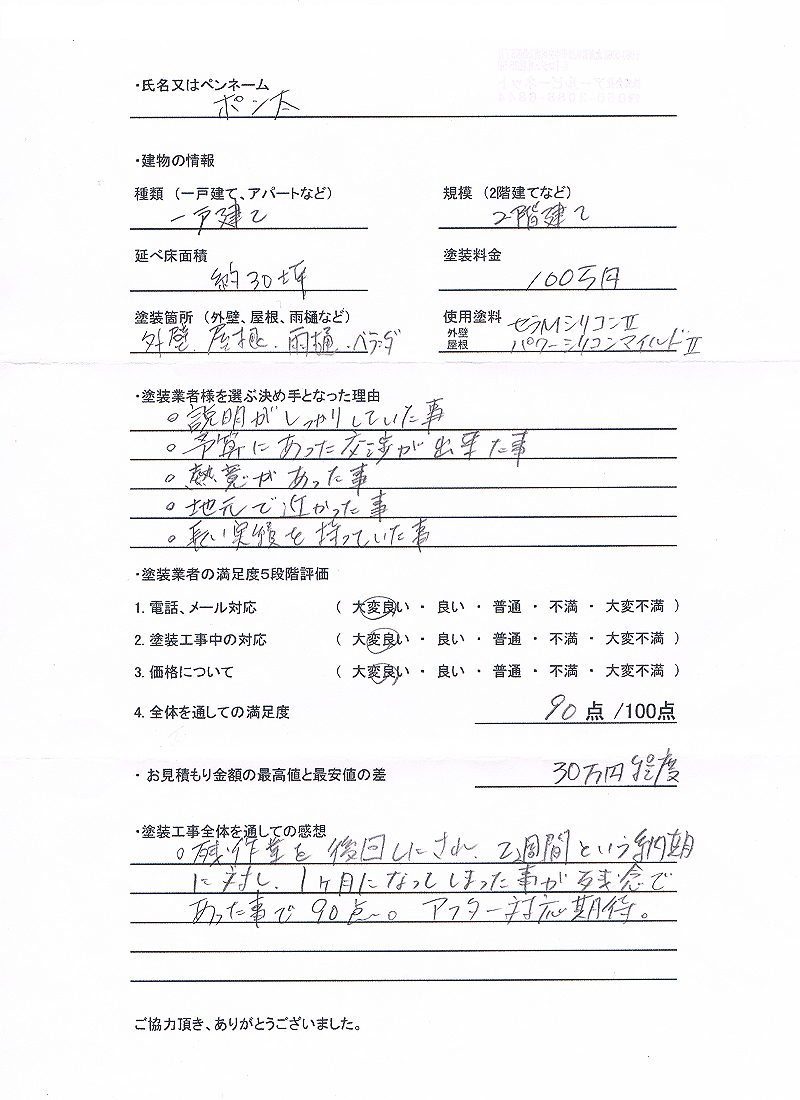 ・氏名又はペンネーム
ポン太
・建物の情報
種類（一戸建て、アパートなど） 規模（2階建てなど）
一戸建て 2階建て
延べ床面積 塗装料金
約30坪 100万円
塗装箇所（外壁、屋根、雨樋など） 使用塗料
外壁、屋根、雨樋、ベランダ 外壁 セラMシリコンⅡ
屋根 パワーシリコンマイルドⅡ
・塗装業者様を選ぶ決め手となった理由
○説明がしっかりしていた事
○予算にあった交渉が出来た事
○熱意があった事
○地元で近かった事
○長い実績を持っていた事
・塗装業者の満足度5段階評価
1. 電話、メール対応 （ 大変良い ・ 良い ・ 普通 ・ 不満 ・ 大変不満 ）
2. 塗装工事中の対応 （ 大変良い ・ 良い ・ 普通 ・ 不満 ・ 大変不満 ）
3. 価格について （ 大変良い ・ 良い ・ 普通 ・ 不満 ・ 大変不満 ）
4. 全体を通しての満足度 90点 /100点
・ お見積もり金額の最高値と最安値の差 30万円程度
・塗装工事全体を通しての感想
○残作業を後回しにされ、2週間という納期
に対し、1ヶ月になってしまった事が残念で
あった事で90点〜。アフター対応期待。
ご協力頂き、ありがとうございました。